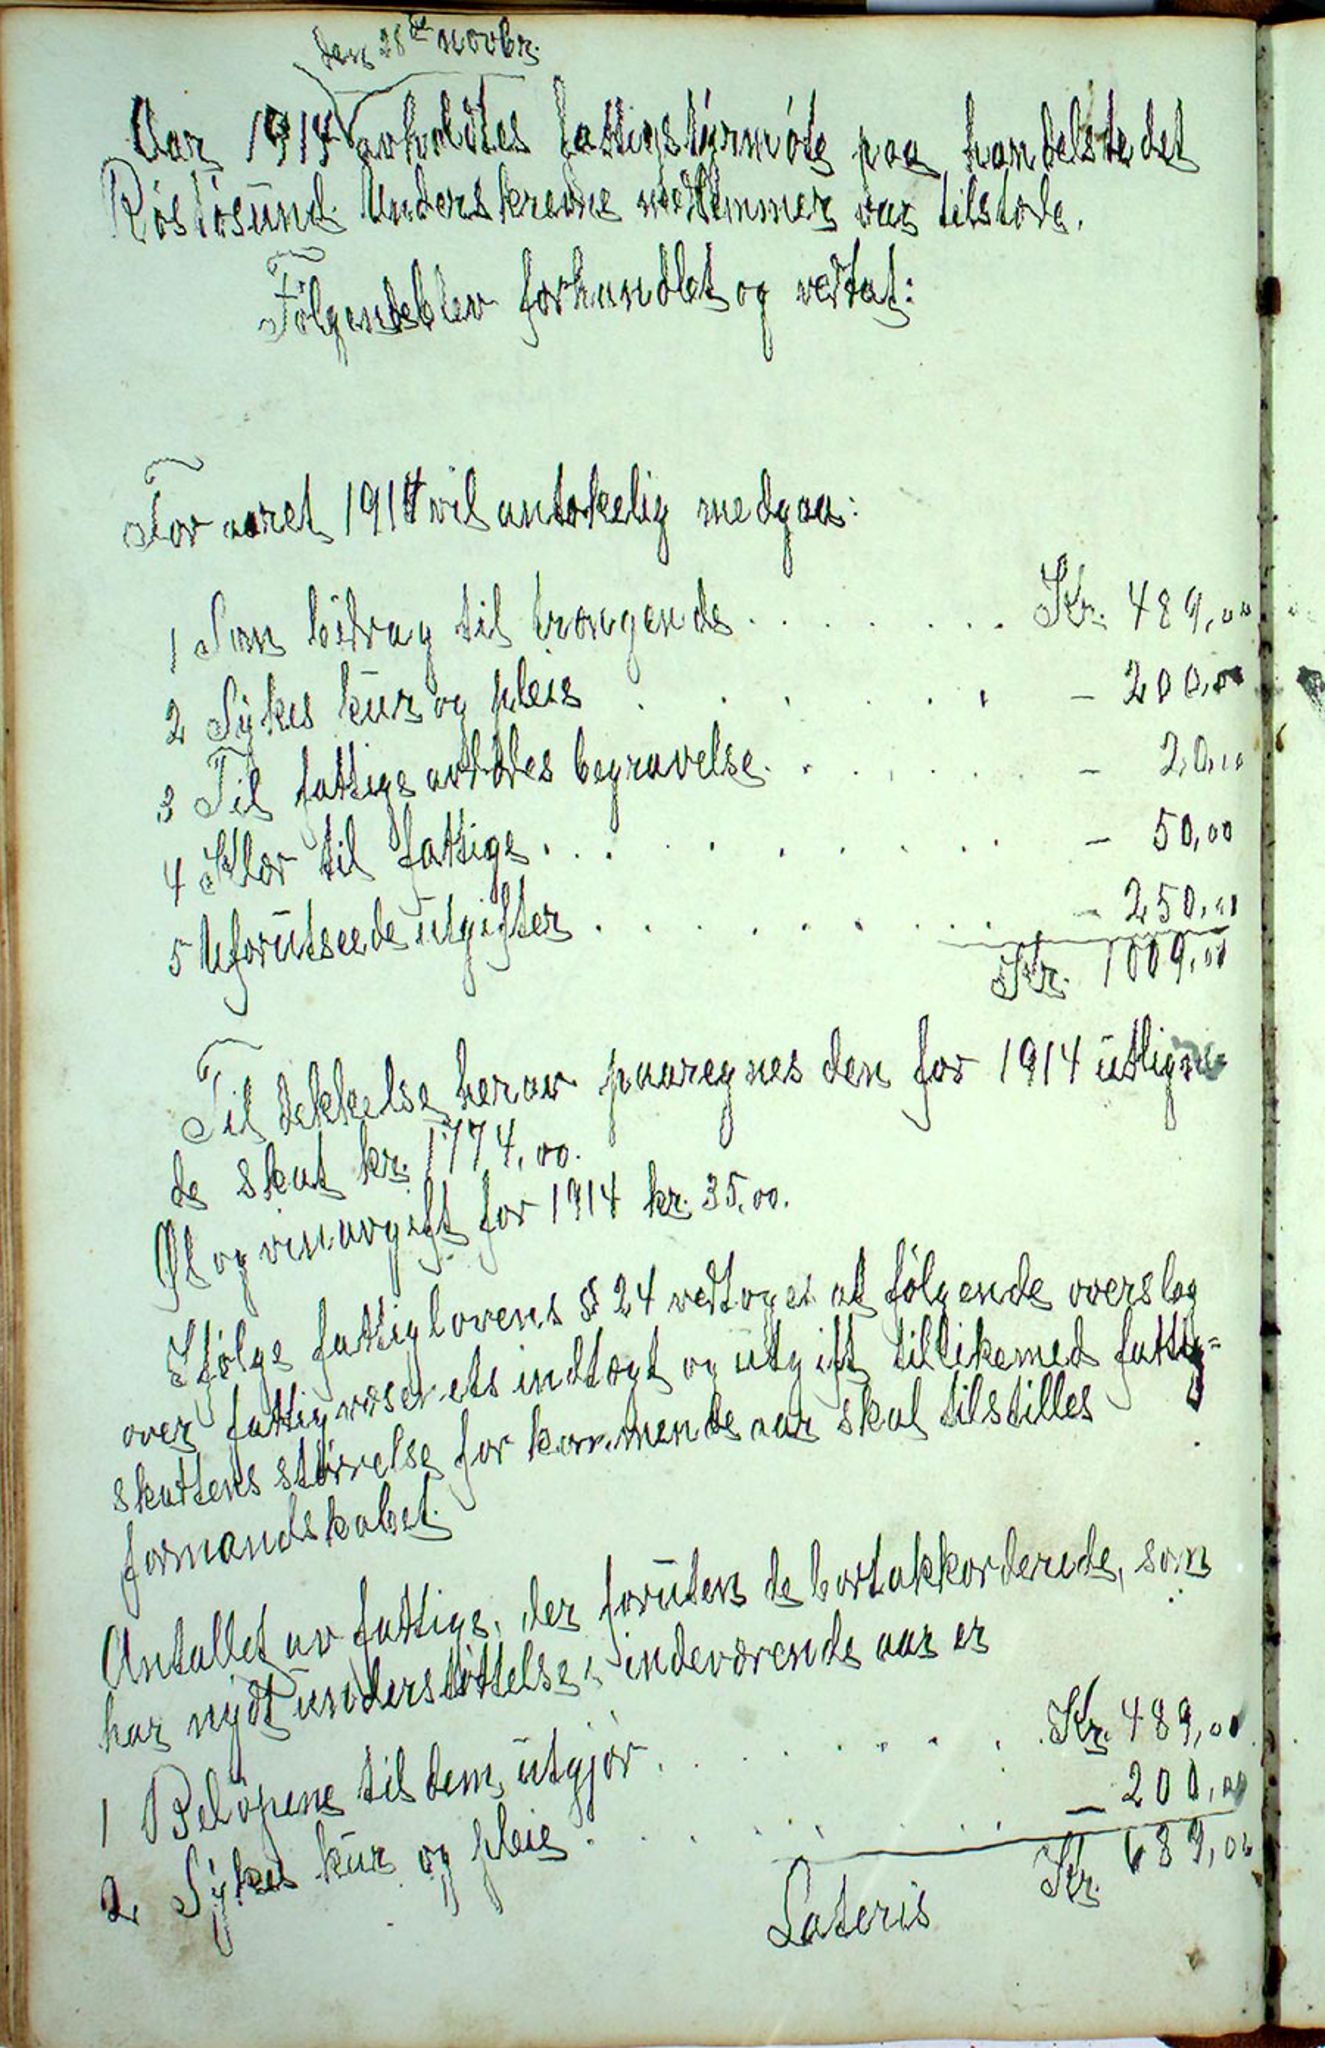 den 28de novbr.
Aar 1914 avholdtes fattigstyrmöte paa handelstedet
Röstösund. Underskrevne medlemmer var tilstede.
Fölgende blev forhandlet og vedtat:
For aaret 1914 vil antakelig medgaa:
1 Som bidrag til trængende . . . . . . . Kr. 489,00
2 Sykes kur og pleie . . . . . . - 200,00
3 Til fattige avdödes begravelse . . . . . . - 20,00
4 Klær til fattige . . . . . . . . . - 50,00
5 Uforutseede utgifter . . . . . . . . - 250,00
Kr. 1009,00
Til dekkelse herav paaregnes den for 1914 utligne-
de skat kr. 1774,00.
Øl og vinavgift for 1914 kr. 35,00.
Ifölge fattiglovens § 24 vedtoges at fölgende overslag
over fattigvæsenets indtægt og utgift tillikemed fattig=
skattens störrelse for kommende aar skal tilstilles
formandskabet.
Antallet av fattige, der foruten de bortakkorderede, som
har nydt understöttelse i indeværende aar er
1 Belöpene til dem utgjör . . . . . . . Kr. 489,00
2 Sykes kur og pleie . . . . . . . - 200,00
Lateris Kr. 689,00